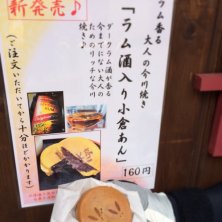 新発売♪
ラム香る
大人の今川焼
「ラム酒入り小倉あん」
160円
ダークラム酒が香る
今までにない大人の
ためのリッチな今川
焼き♪
(ご注文いただいてから十分ほどかかります)